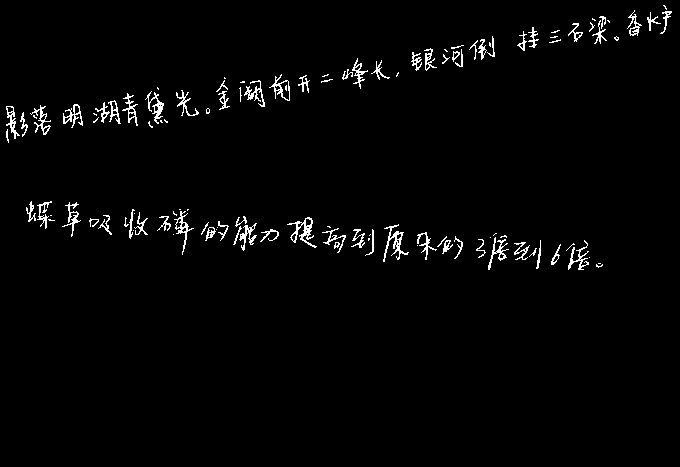 影落明湖青黛光。金阙前开二峰长，银河倒挂三石梁。香炉
蝶草吸收磷的能力提高到原来的3倍到6倍。